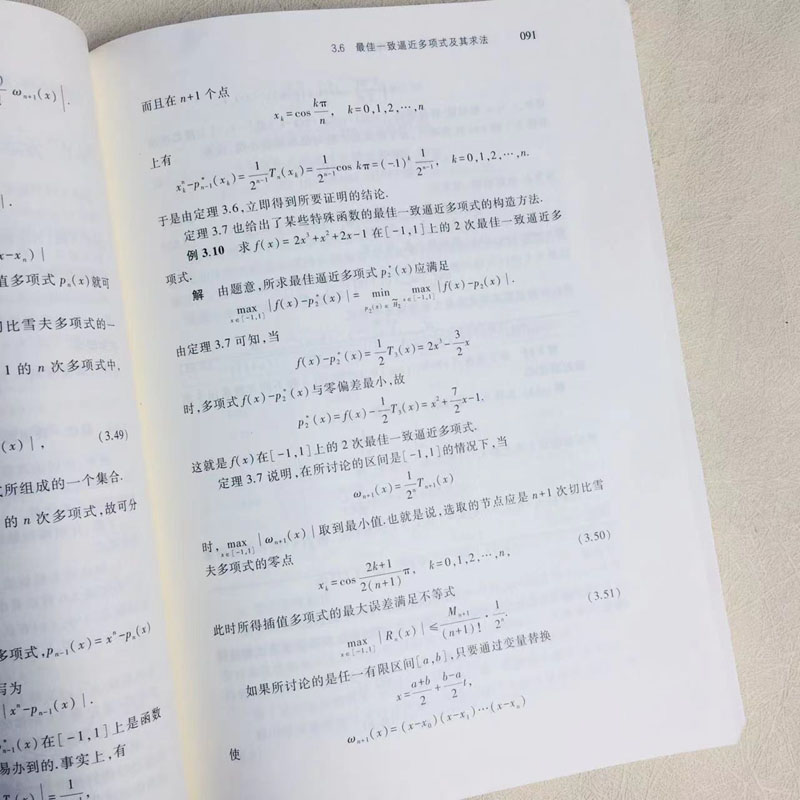 ω_{n+1}(x)|.
x-x_n)|
值多项式 p_n(x)就可
切比雪夫多项式的一
1 的 n 次多项式中,
(x)|, (3.49)
式所组成的一个集合.
的 n 次多项式,故可分
多项式,p_{n-1}(x)=x^n-p_n(x)
写为
|x^n-p_{n-1}(x)|.
p^*_{n-1}(x)在[-1,1]上是函数
易办到的.事实上,有
3.6 最佳一致逼近多项式及其求法 091
而且在 n+1 个点
x_k=cos kπ/n, k=0,1,2,⋯,n
上有
x_k^n-p^*_{n-1}(x_k)=1/2^{n-1} T_n(x_k)=1/2^{n-1} cos kπ=(-1)^k 1/2^{n-1}, k=0,1,2,⋯,n.
于是由定理 3.6,立即得到所要证明的结论.
定理 3.7 也给出了某些特殊函数的最佳一致逼近多项式的构造方法.
例 3.10 求 f(x)=2x^3+x^2+2x-1 在[-1,1]上的 2 次最佳一致逼近多
项式.
解 由题意,所求最佳逼近多项式 p_2^*(x)应满足
max_{x∈[-1,1]} |f(x)-p_2^*(x)|= min_{p_2(x)∈π_2} max_{x∈[-1,1]} |f(x)-p_2(x)|.
由定理 3.7 可知,当
f(x)-p_2^*(x)=1/2 T_3(x)=2x^3-3/2 x
时,多项式 f(x)-p_2^*(x)与零偏差最小,故
p_2^*(x)=f(x)-1/2 T_3(x)=x^2+7/2 x-1.
这就是 f(x)在[-1,1]上的 2 次最佳一致逼近多项式.
定理 3.7 说明,在所讨论的区间是[-1,1]的情况下,当
ω_{n+1}(x)=1/2^n T_{n+1}(x)
时, max_{x∈[-1,1]} |ω_{n+1}(x)|取到最小值.也就是说,选取的节点应是 n+1 次切比雪
夫多项式的零点
x_k=cos (2k+1)/(2(n+1)) π, k=0,1,2,⋯,n, (3.50)
此时所得插值多项式的最大误差满足不等式
max_{x∈[-1,1]} |R_n(x)|≤ M_{n+1}/(n+1)! · 1/2^n. (3.51)
如果所讨论的是任一有限区间[a,b],只要通过变量替换
x=(a+b)/2+(b-a)/2 t,
使
ω_{n+1}(x)=(x-x_0)(x-x_1)⋯(x-x_n)